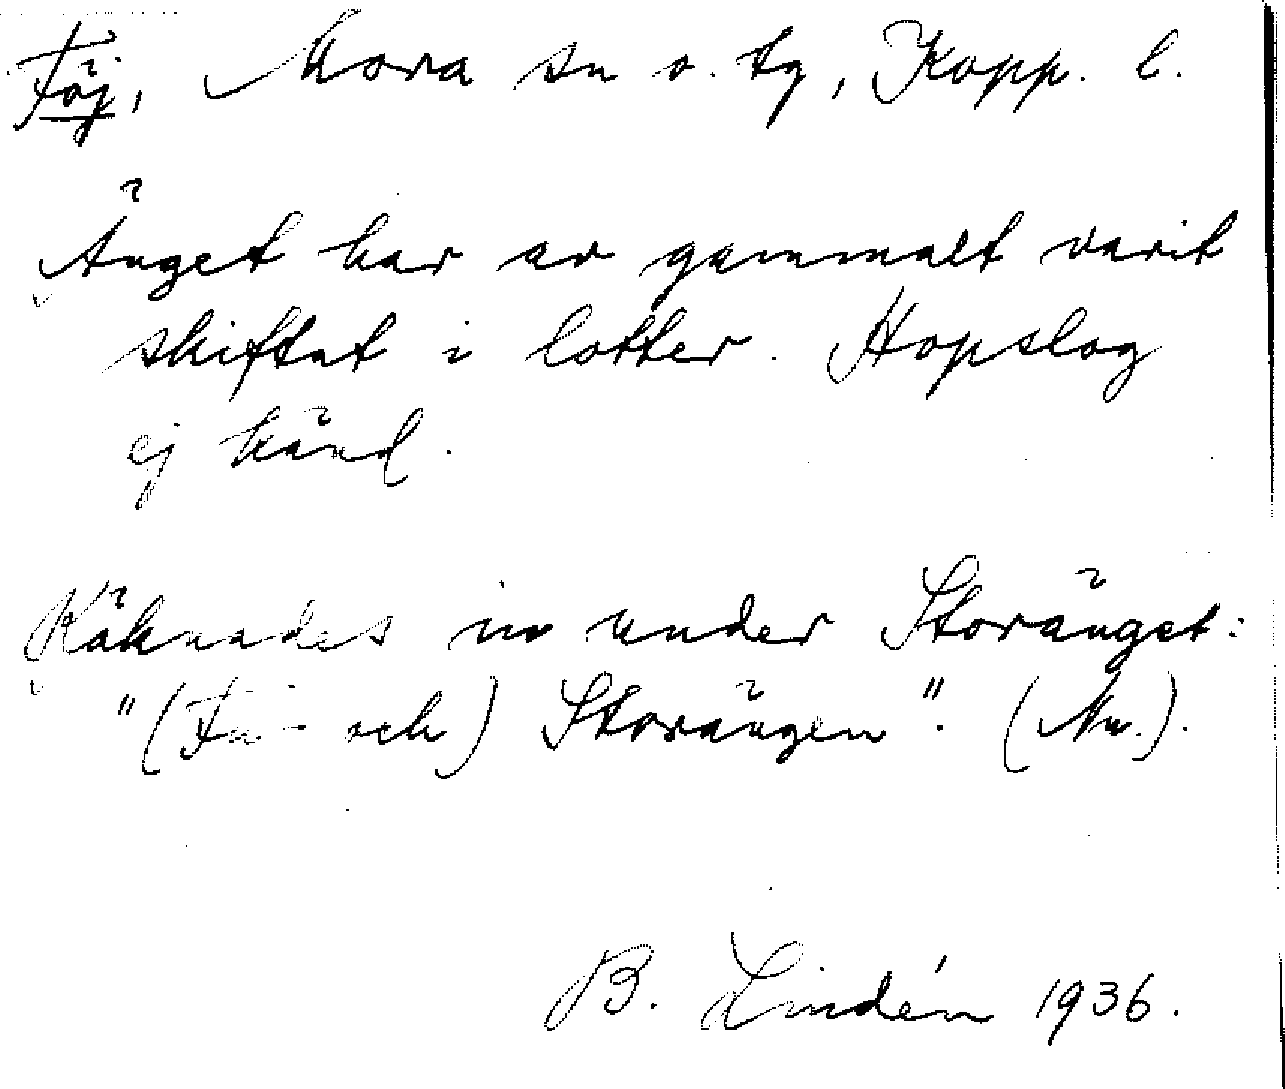 Töj, Mora sn o. tg, Kopp. l.
Änget har av gammalt varit
skiftat i lotter. Hopslog
ej känd.
Räknades in under Storänget:
"( och) Storängen". (Nw.).
B. Lindén 1936.